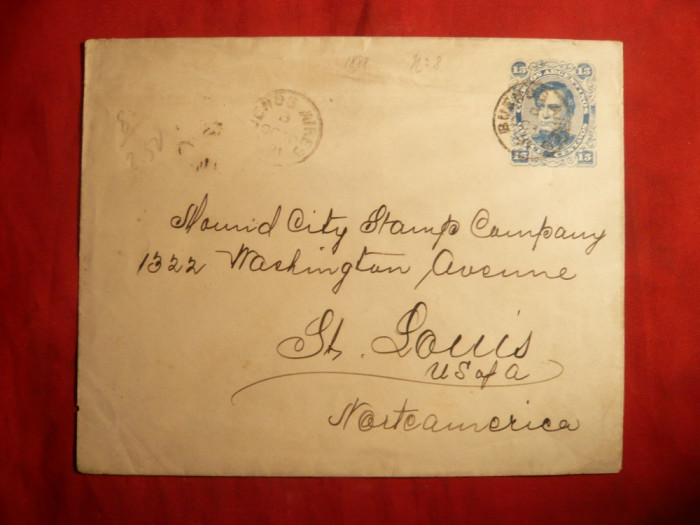 1888 No 8
15 15
BUENOS AIRES
15 15
2.50
Mound City Stamp Company
1322 Washington Avenue
St. Louis
US of A
Norteamerica